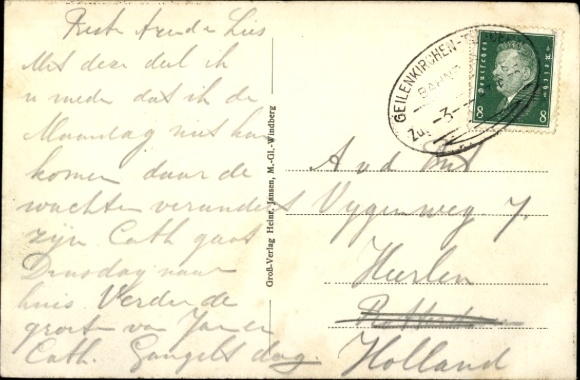 Met deze deel ik
u mede dat ik de
Maandag niet kan
komen daar de
wachten verandert
zijn. Cath gaat
Dinsdag naar
huis. Verder de
groeten van Jan en
Cath. Gangelt dag.
Groß-Verlag Heinr. Jansen, M.-Gl.-Windberg
GEILENKIRCHEN-T
BAHNP
Zug 3
Deutsches Reich
8 8
A v d
Vygenweg 7.
Heerlen
Holland